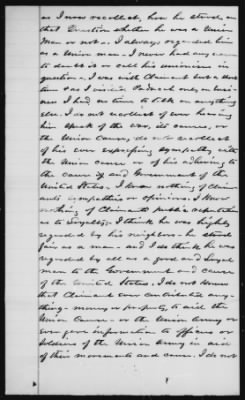 as I now recollect, how he stood, on
that Question whether he was a Union
Man or not. I always regarded him
as a Union man. I never had any cause
to doubt it or call his unionism in
question. I was with Claimant but a short
time as I visited Paducah only on business
and I had no time to talk on anything
else. I do not recollect of ever hearing
him speak of the war, its causes, or
the Union cause, do not recollect
of his ever expressing sympathy with
the Union cause or of his adhering to
the cause of and Government of the
United States. I know nothing of Claim
ants sympathies or opinions. I know
nothing of Claimants public reputation
as to Loyalty. I think he was highly
regarded by his neighbors - he stood
fair as a man. and I do think he was
regarded by all as a good and Loyal
man to the Government and cause
of the United States. I do not know
that Claimant ever contributed any-
thing - money or property, to aid the
Union Cause - or the Union Army or
ever gave information to officers or
Soldiers of the Union Army in aid
of their movements and cause. I do not